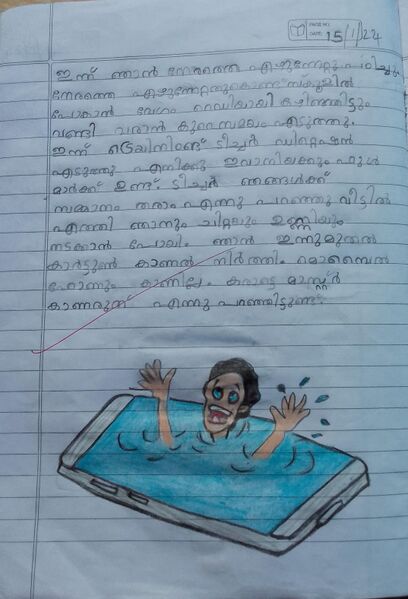 PAGE NO.
DATE: 15/1/24
ഇന്ന് ഞാൻ നേരത്തെ എഴുന്നേറ്റു പഠിച്ചു.
നേരത്തെ എഴുന്നേറ്റതുകൊണ്ട് സ്കൂളിൽ
പോകാൻ വേഗം റെഡിയായി കഴിഞ്ഞിട്ടും
വണ്ടി വരാൻ കുറെസമയം എടുത്തു.
ഇന്ന് ടീച്ചർ ഡിറ്റെഷൻ
എടുത്തു എനിക്കു ഇവാനിയക്കും ഫുൾ
മാർക്ക് ഉണ്ട്. ടീച്ചർ ഞങ്ങൾക്ക്
സമ്മാനം തരാം എന്നു പറഞ്ഞു വീട്ടിൽ
എത്തി ഞാനും ചിറ്റയും ഉണ്ണിയും
നടക്കാൻ പോയി. ഞാൻ ഇന്നുമുതൽ
കാർട്ടൂൺ കാണൽ നിർത്തി. മൊബൈൽ
ഫോണും കാണില്ല. കരാട്ടെ മാസ്റ്റർ
കാണരുത് എന്നു പറഞ്ഞിട്ടുണ്ട്.